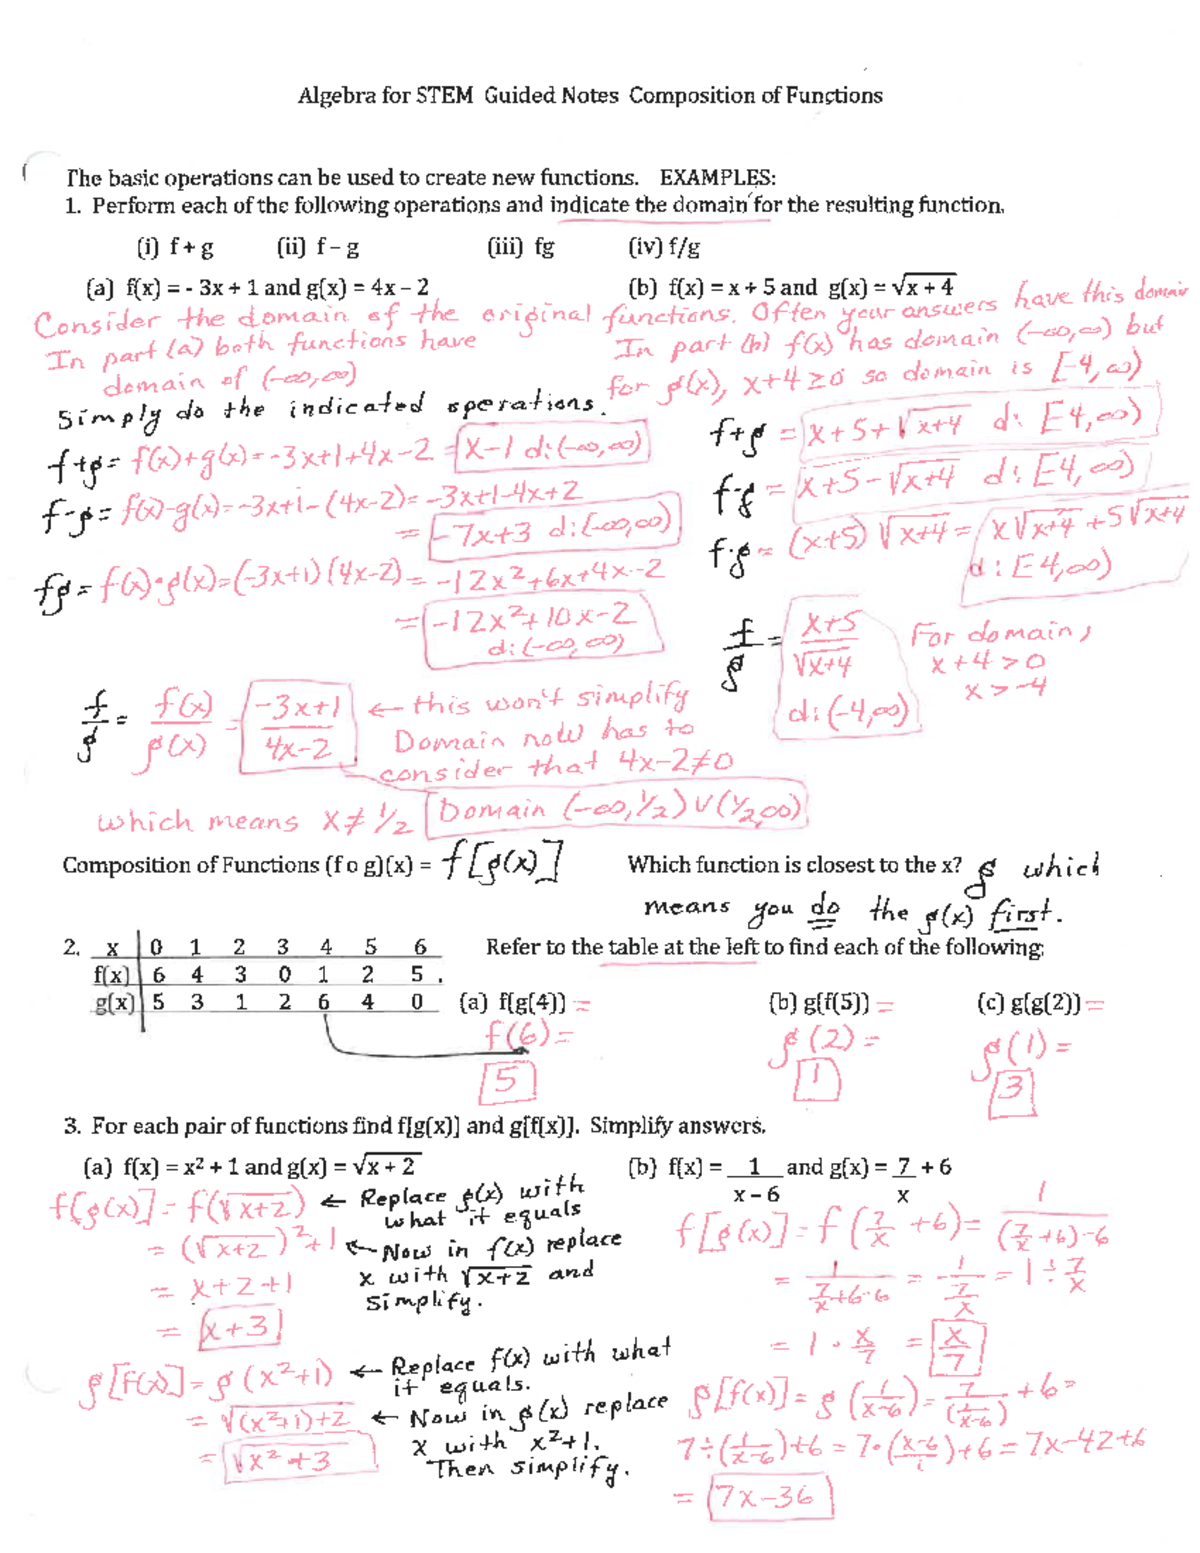 Algebra for STEM Guided Notes Composition of Functions
The basic operations can be used to create new functions. EXAMPLES:
1. Perform each of the following operations and indicate the domain for the resulting function.
(i) f + g (ii) f – g (iii) fg (iv) f/g
(a) f(x) = - 3x + 1 and g(x) = 4x – 2 (b) f(x) = x + 5 and g(x) = √x + 4
Consider the domain of the original functions. Often your answers have this domain
In part (a) both functions have
domain of (-∞,∞)
In part (b) f(x) has domain (-∞,∞) but
for g(x), x+4≥0 so domain is [-4,∞)
Simply do the indicated operations.
f+g = f(x)+g(x) = -3x+1+4x-2 = x-1 d:(-∞,∞)
f-g = f(x)-g(x) = -3x+1-(4x-2) = -3x+1-4x+2
= -7x+3 d:(-∞,∞)
fg = f(x)·g(x) = (-3x+1)(4x-2) = -12x²+6x+4x-2
= -12x²+10x-2
d:(-∞,∞)
f/g = f(x)/g(x) = -3x+1/4x-2 ← this won't simplify
Domain now has to
consider that 4x-2≠0
which means x≠1/2 Domain (-∞,1/2)∪(1/2,∞)
f+g = x+5+√x+4 d: [-4,∞)
f-g = x+5-√x+4 d: [-4,∞)
f·g = (x+5)√x+4 = x√x+4 +5√x+4
d: [-4,∞)
f/g = x+5/√x+4
d:(-4,∞)
For domain,
x+4>0
x>-4
Composition of Functions (f o g)(x) = f[g(x)] Which function is closest to the x? g which
means you do the g(x) first.
2. x 0 1 2 3 4 5 6 Refer to the table at the left to find each of the following:
f(x) 6 4 3 0 1 2 5 .
g(x) 5 3 1 2 6 4 0 (a) f(g(4)) = (b) g(f(5)) = (c) g(g(2)) =
f(6) = g(2) = g(1) =
5 1 3
3. For each pair of functions find f[g(x)] and g[f(x)]. Simplify answers.
(a) f(x) = x² + 1 and g(x) = √x + 2 (b) f(x) = 1 and g(x) = 7 + 6
x – 6 x
f[g(x)] = f(√x+2) ← Replace g(x) with
what it equals
= (√x+2)²+1 ← Now in f(x) replace
= x+2+1 x with √x+2 and
simplify.
= x+3
g[f(x)] = g(x²+1) ← Replace f(x) with what
it equals.
= √(x²+1)+2 ← Now in g(x) replace
x with x²+1.
= √x²+3 Then simplify.
f[g(x)] = f(7/x +6) = 1/(7/x+6)-6
= 1/7/x+6-6 = 1/7/x = 1÷7/x
= 1·x/7 = x/7
g[f(x)] = g(1/x-6) = 7/(1/x-6) +6 =
7÷(1/x-6)+6 = 7·(x-6/1)+6 = 7x-42+6
= 7x-36